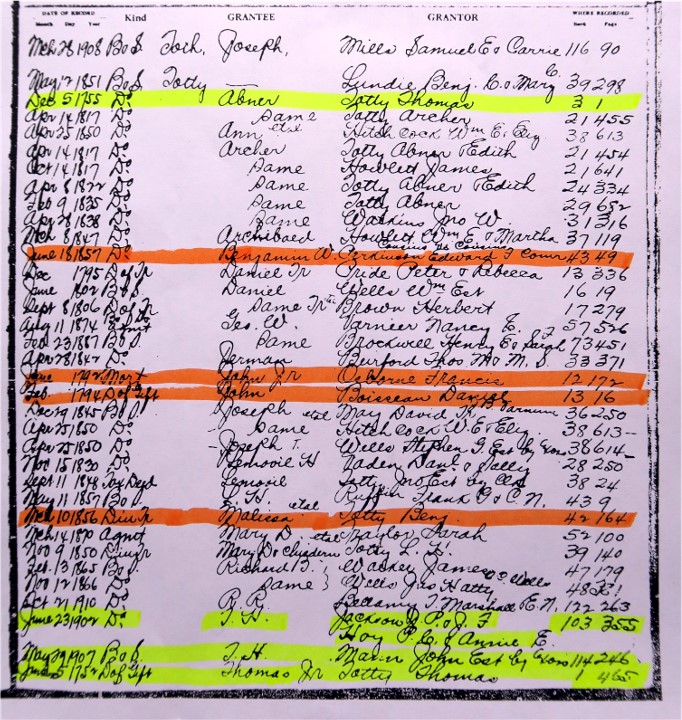 DATE OF RECORD Kind GRANTEE GRANTOR WHERE RECORDED
Month Day Year Book Page
Mch 28 1908 B o S. Toth, Joseph, Mills Samuel E & Carrie 116 90
May 12 1851 B o S. Totty — Lundie Benj. C. & Mary C. 39 298
Dec 5 1755 Do Abner Totty Thomas 3 1
Apr 14 1817 Do Same Totty Archer 21 455
Apr 25 1850 Do Ann etal Hitchcock Wm E. & Eliz 38 613
Apr 14 1817 Do Archer Totty Abner & Edith 21 454
Oct 14 1817 Do Same Howlett James 21 641
Apr 8 1822 Do Same Totty Abner & Edith 24 334
Feb 9 1835 Do Same Totty Abner 29 652
Apr 28 1838 Do Same Watkins Jno W. 31 316
Mch 8 1847 Do Archibald Howlett Wm E. & Martha 37 119
June 18 1857 Do Benjamin W. Perkinson Edward T Comr 43 49
Dec 1795 D of Tr Daniel Jr Pride Peter & Rebecca 13 336
June 1802 B o S. Daniel Wells Wm Est 16 19
Sept 8 1806 D of Tr Same Brown Herbert 17 279
Aug 11 1874 Geo. W. Varnier Nancy E. 57 526
Feb 23 1887 B o S Same Brockwell Henry E & Sarah J 73 451
Apr 28 1842 Do Jerman Burford Thos. M. 33 371
June 1792 Mort John Jr Osborne Francis 12 172
Feb. 1794 D of Gift John Boisseau Daniel 13 16
Dec 29 1845 B o S. Joseph etal May David 36 250
Apr 25 1850 Do Same Hitchcock W. E & Eliz. 38 613
Apr 25 1850 Do Joseph T. Wells Stephen G. Est by Exor 38 614
Nov 15 1830 Do Lemovil H Vaden Danl. & Sally 28 250
Sept 11 1848 Deed Lemovil Totty Jno Est by Clk 38 24
May 11 1857 B o S. Ruffin Frank G & C. N. 43 9
Mch 10 1856 Div Tr Malissa etal Totty Benj. 42 164
Mch 14 1870 Agmt Mary D. etal Taylor Sarah 52 100
Nov 9 1850 Mary D. Totty L. H. 39 140
Feb. 13 1865 B o S. Richard B. Walkey James 47 179
Nov 12 1866 Do Same } Wells Jas Hatty 48
Oct 21 1910 Do R. R. Bellamy T. Marshall & E. N. 122 263
June 23 1902 Do T. H. Jackson J. P. & J. F 103 355
Hoy P. C. & Annie E.
May 29 1907 B o S. T. H. Mann John Est by Exors 114 246
June 5 1752 D of Gift Thomas Jr Totty Thomas 1 465